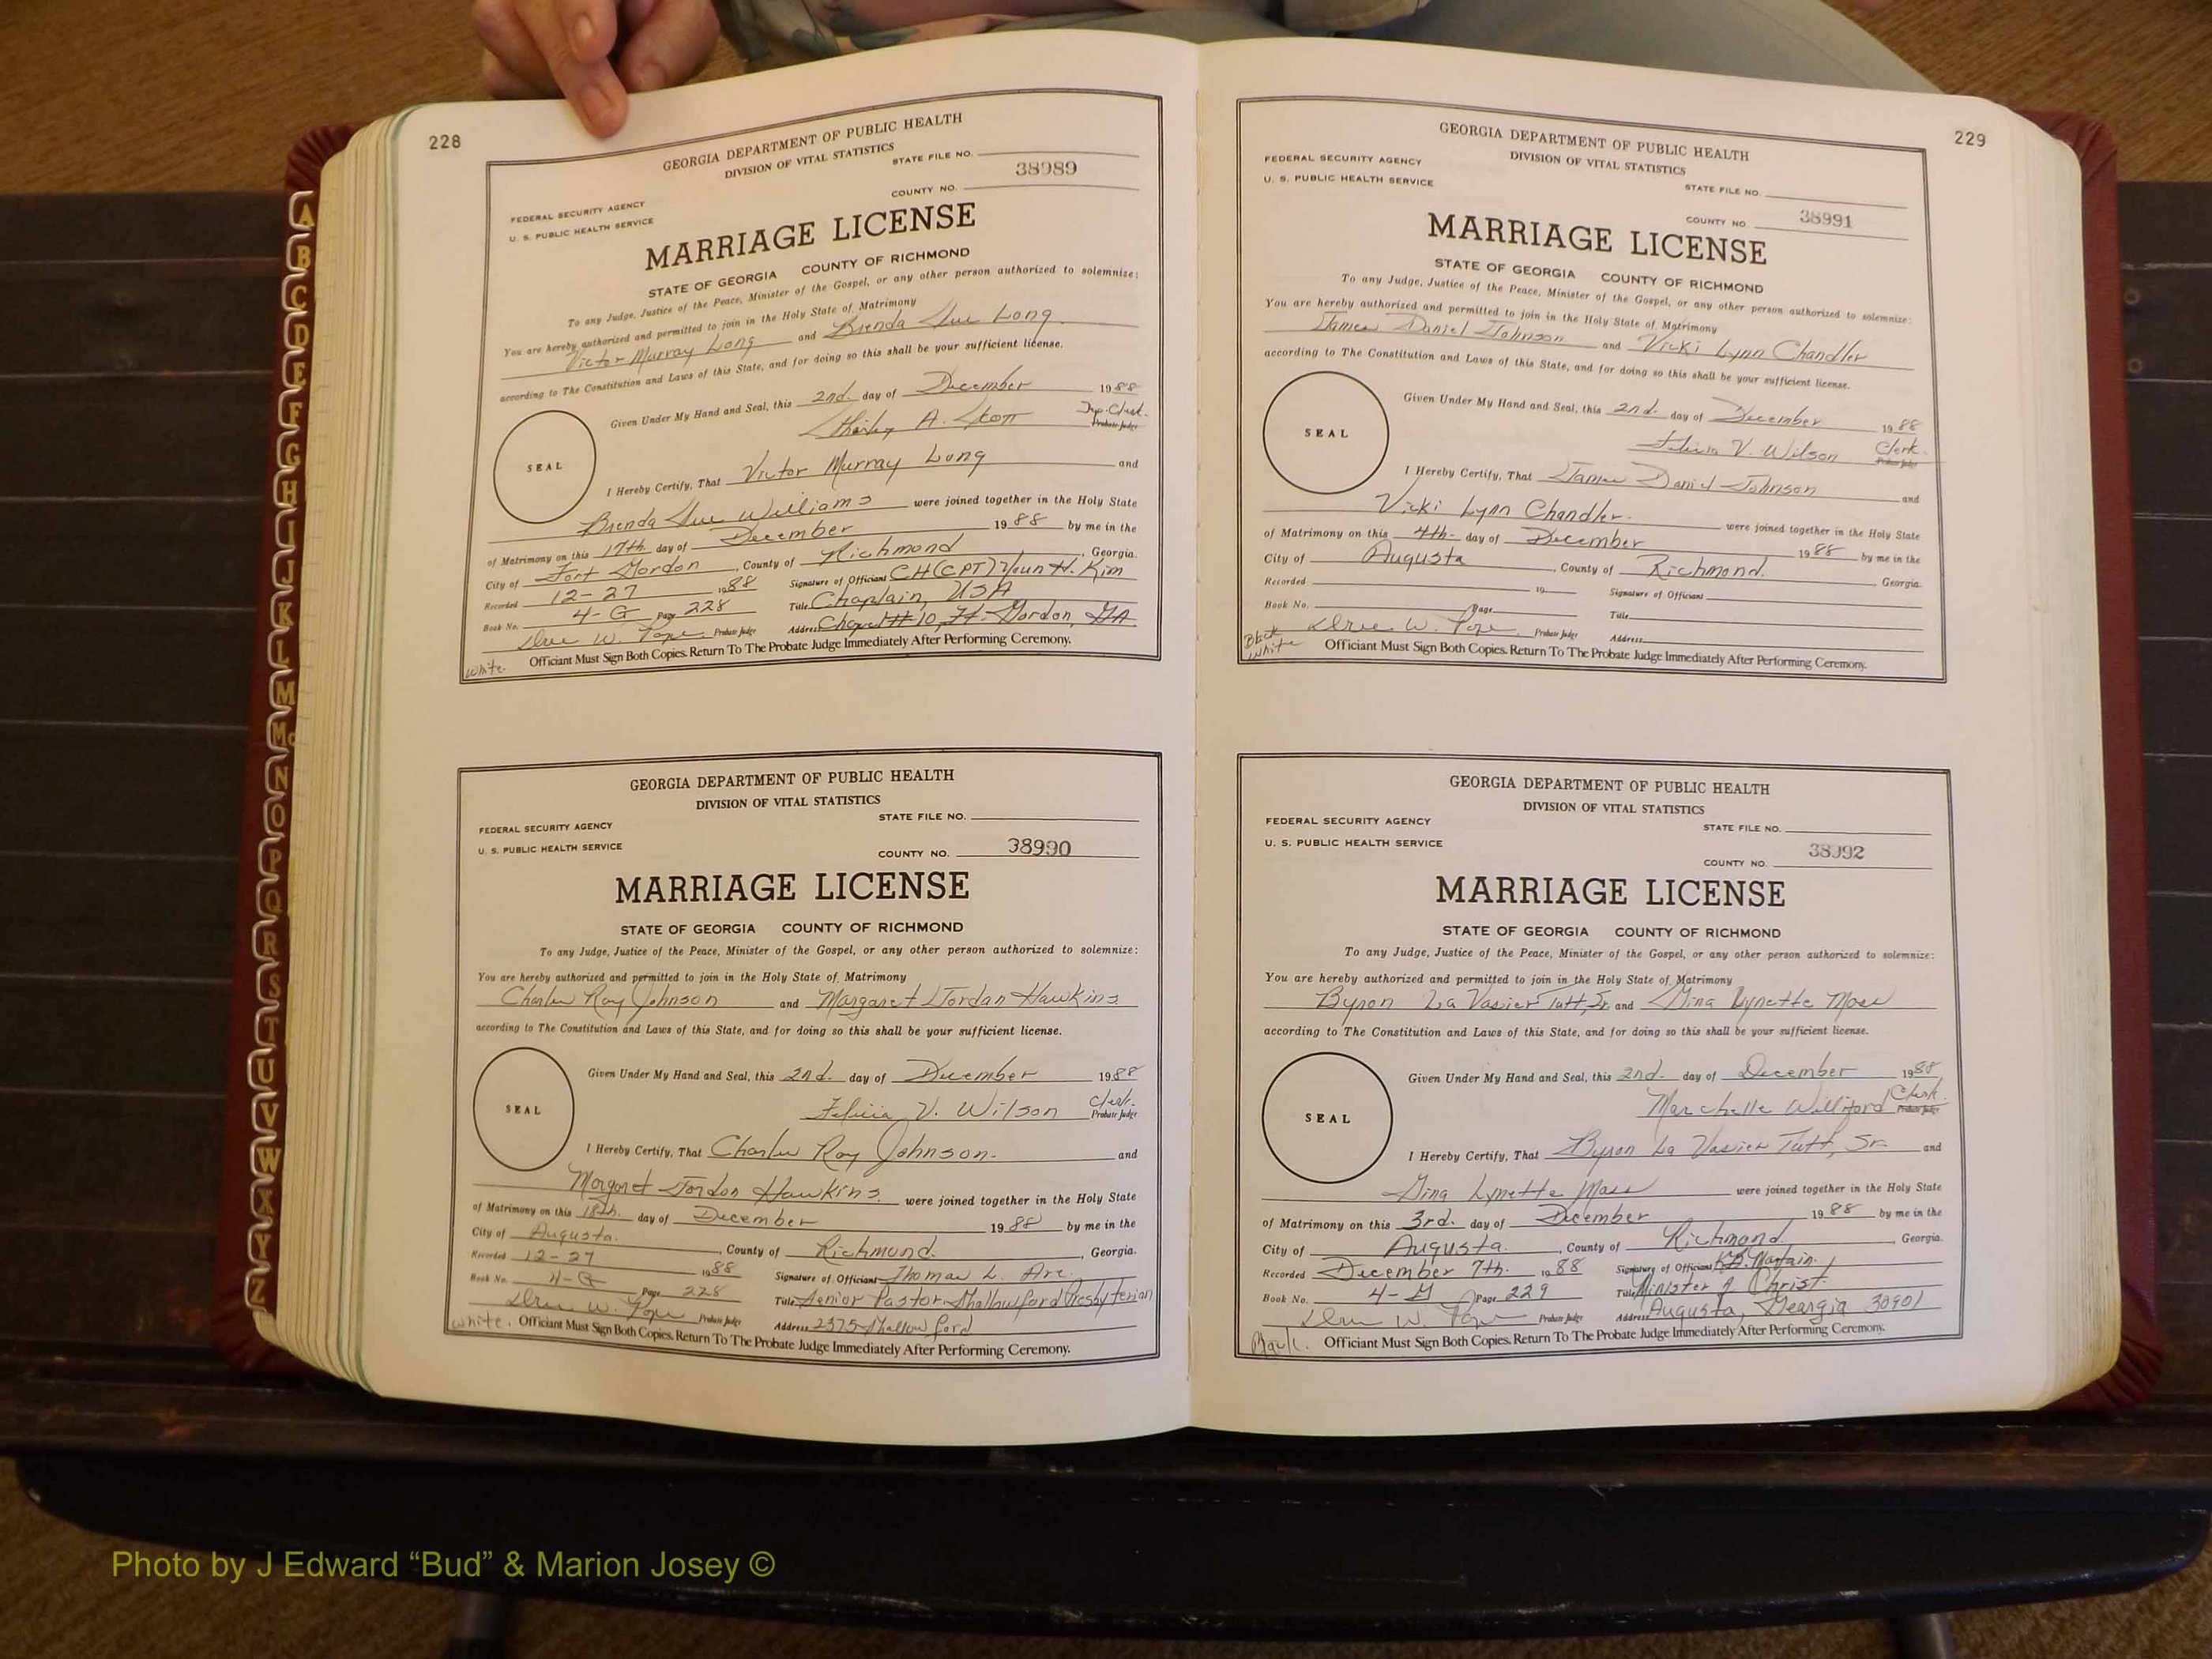 228
GEORGIA DEPARTMENT OF PUBLIC HEALTH
DIVISION OF VITAL STATISTICS
STATE FILE NO.
38989
COUNTY NO.
FEDERAL SECURITY AGENCY
U. S. PUBLIC HEALTH SERVICE
MARRIAGE LICENSE
STATE OF GEORGIA COUNTY OF RICHMOND
To any Judge, Justice of the Peace, Minister of the Gospel, or any other person authorized to solemnize:
You are hereby authorized and permitted to join in the Holy State of Matrimony
Victor Murray Long and Brenda Sue Long
according to The Constitution and Laws of this State, and for doing so this shall be your sufficient license.
Given Under My Hand and Seal, this 2nd. day of December 1988
Shirley A. Dep. Clerk.
Probate Judge
SEAL
I Hereby Certify, That Victor Murray Long and
Brenda Sue Williams were joined together in the Holy State
of Matrimony on this 17th day of December 1988 by me in the
City of Fort Gordon, County of Richmond, Georgia.
Recorded 12-27 1988 Signature of Officiant CH(CPT) Youn H. Kim
Book No. 4-G Page 228 Title Chaplain, USA
W. Pope Probate Judge Address Chapel #10, Ft. Gordon, GA
white Officiant Must Sign Both Copies. Return To The Probate Judge Immediately After Performing Ceremony.
GEORGIA DEPARTMENT OF PUBLIC HEALTH
DIVISION OF VITAL STATISTICS
STATE FILE NO.
FEDERAL SECURITY AGENCY
U. S. PUBLIC HEALTH SERVICE
COUNTY NO. 38990
MARRIAGE LICENSE
STATE OF GEORGIA COUNTY OF RICHMOND
To any Judge, Justice of the Peace, Minister of the Gospel, or any other person authorized to solemnize:
You are hereby authorized and permitted to join in the Holy State of Matrimony
Charles Ray Johnson and Margaret Jordan Hawkins
according to The Constitution and Laws of this State, and for doing so this shall be your sufficient license.
Given Under My Hand and Seal, this 2nd. day of December 1988
Felicia V. Wilson Clerk.
Probate Judge
SEAL
I Hereby Certify, That Charles Ray Johnson. and
Margaret Jordon Hawkins. were joined together in the Holy State
of Matrimony on this 18th. day of December 1988 by me in the
City of Augusta., County of Richmond., Georgia.
Recorded 12-27 1988 Signature of Officiant Thomas L.
Book No. 4-G Page 228 Title Senior Pastor-Shallowford Presbyterian
W. Pope Probate Judge Address 2375 Shallowford
white. Officiant Must Sign Both Copies. Return To The Probate Judge Immediately After Performing Ceremony.
229
GEORGIA DEPARTMENT OF PUBLIC HEALTH
DIVISION OF VITAL STATISTICS
FEDERAL SECURITY AGENCY
U. S. PUBLIC HEALTH SERVICE
STATE FILE NO.
COUNTY NO. 38991
MARRIAGE LICENSE
STATE OF GEORGIA COUNTY OF RICHMOND
To any Judge, Justice of the Peace, Minister of the Gospel, or any other person authorized to solemnize:
You are hereby authorized and permitted to join in the Holy State of Matrimony
James Daniel Johnson and Vicki Lynn Chandler
according to The Constitution and Laws of this State, and for doing so this shall be your sufficient license.
Given Under My Hand and Seal, this 2nd. day of December 1988
Felicia V. Wilson Clerk.
Probate Judge
SEAL
I Hereby Certify, That James Daniel Johnson and
Vicki Lynn Chandler. were joined together in the Holy State
of Matrimony on this 4th. day of December 1988 by me in the
City of Augusta, County of Richmond. Georgia.
Recorded 19 Signature of Officiant
Book No. Page Title
W. Pope Probate Judge Address
Black
white Officiant Must Sign Both Copies. Return To The Probate Judge Immediately After Performing Ceremony.
GEORGIA DEPARTMENT OF PUBLIC HEALTH
DIVISION OF VITAL STATISTICS
FEDERAL SECURITY AGENCY
STATE FILE NO.
U. S. PUBLIC HEALTH SERVICE
COUNTY NO. 38992
MARRIAGE LICENSE
STATE OF GEORGIA COUNTY OF RICHMOND
To any Judge, Justice of the Peace, Minister of the Gospel, or any other person authorized to solemnize:
You are hereby authorized and permitted to join in the Holy State of Matrimony
Byron La Vasier Tutt, Sr. and Gina Lynette Moss
according to The Constitution and Laws of this State, and for doing so this shall be your sufficient license.
Given Under My Hand and Seal, this 2nd. day of December 1988
Marchelle Williford Clerk.
Probate Judge
SEAL
I Hereby Certify, That Byron La Vasier Tutt, Sr. and
Gina Lynette Moss were joined together in the Holy State
of Matrimony on this 3rd. day of December 1988 by me in the
City of Augusta., County of Richmond, Georgia.
Recorded December 7th. 1988 Signature of Officiant
Book No. 4-G Page 229 Title Minister of Christ
W. Pope Probate Judge Address Augusta, Georgia 30901
Black. Officiant Must Sign Both Copies. Return To The Probate Judge Immediately After Performing Ceremony.
A
B
C
D
E
F
G
H
I
J
K
L
M
Mc
N
O
P
Q
R
S
T
U
V
W
X
Y
Z
Photo by J Edward “Bud” & Marion Josey ©